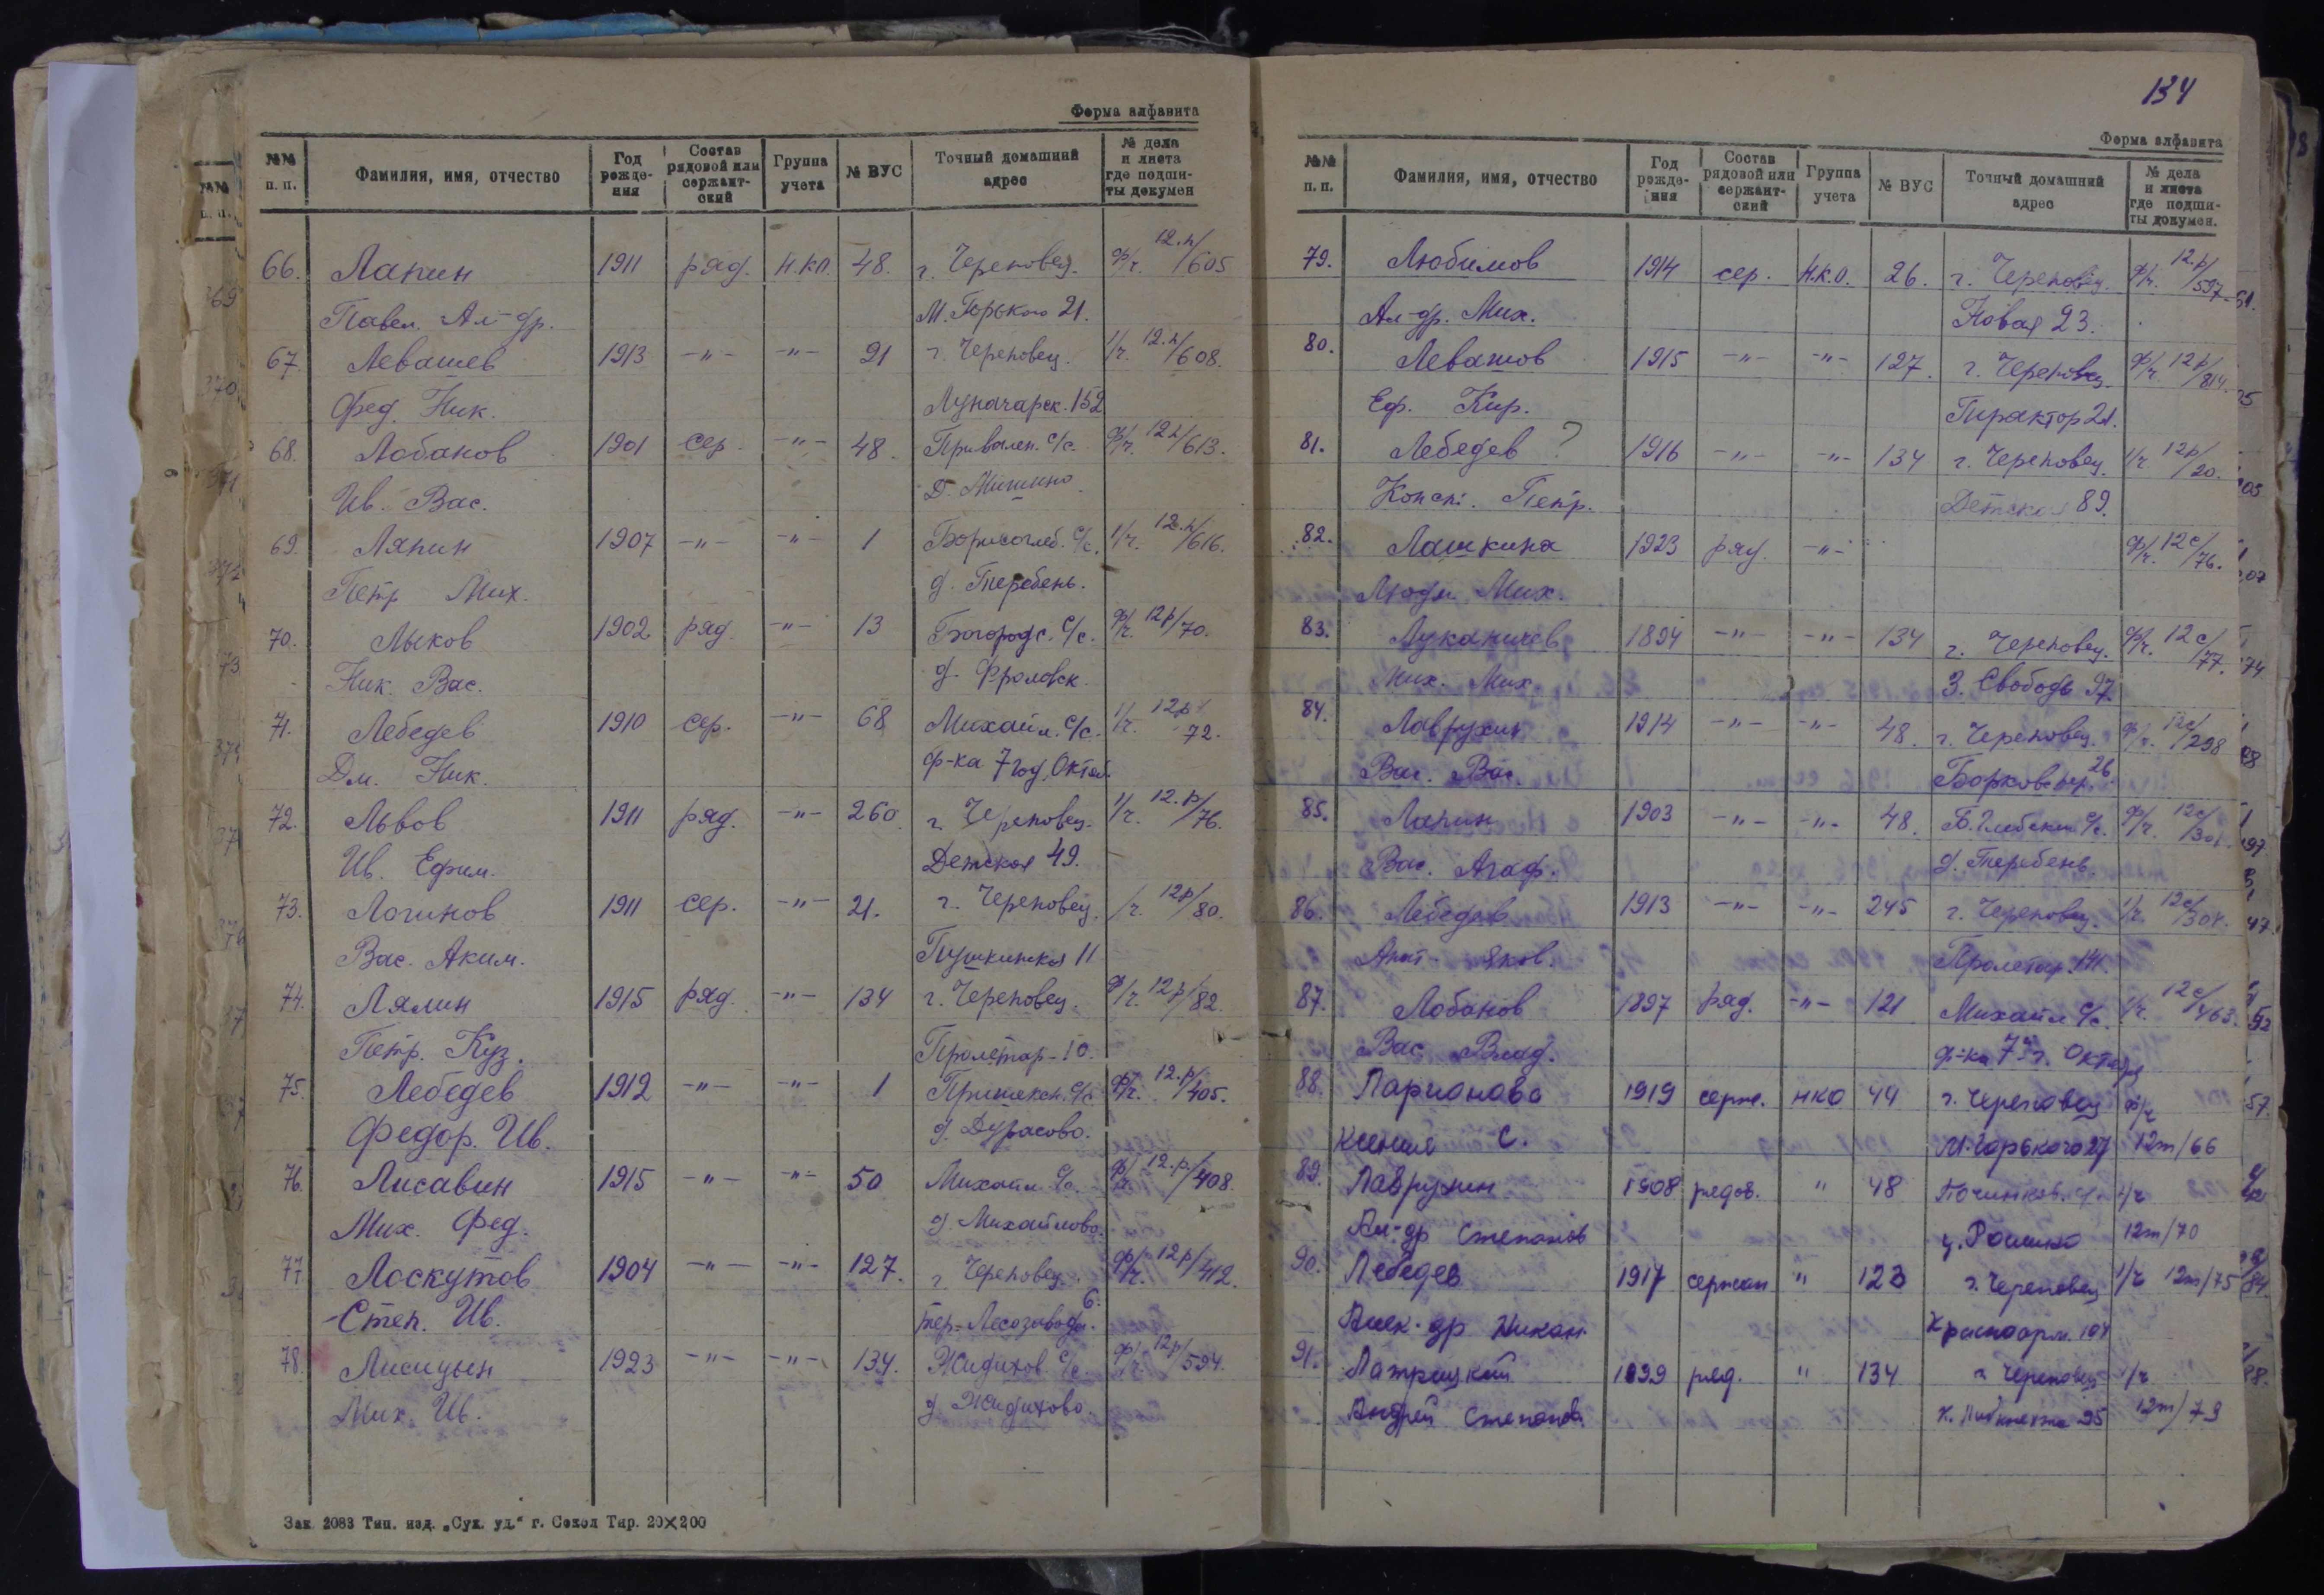 Форма алфавита
№№ п. п. Фамилия, имя, отчество Год рожде- ния Состав рядовой или сержант- ский Группа учета № ВУС Точный домашний адрес № дела и листа где подши- ты докумен
66. Лапин 1911 ряд. Н.К.О. 48. г. Череповец. ф/ч. 12.п/605
Павел. Ал-др. М. Горького 21.
67. Левашев 1913 -"- -"- 21 г. Череповец. 1/ч. 12.п/608.
Фед. Ник. Луначарск. 152
68. Лобанов 1901 сер. -"- 48. с/с. ф/ч. 12п/613.
Ив. Вас. д. Мишино
69. Ляпин 1907 -"- -"- 1 Борисоглеб. с/с. 1/ч. 12.п/616.
Петр Мих. д. Теребень.
70. Лыков 1902 ряд. -"- 13 Богородс. с/с. ф/ч. 12р/70.
Ник. Вас. д. Фроловск.
71. Лебедев 1910 сер. -"- 68 Михайл. с/с. 1/ч. 12р/72.
Дм. Ник. ф-ка 7 год. Октяб.
72. Львов 1911 ряд. -"- 260 г. Череповец. 1/ч. 12.р/76.
Ив. Ефим. Детская 49.
73. Логинов 1911 сер. -"- 21. г. Череповец. /ч. 12р/80.
Вас. Аким. Пушкинская 11
74. Лялин 1915 ряд. -"- 134 г. Череповец. ф/ч. 12р/82.
Петр. Куз. Пролетар-10.
75. Лебедев 1912 -"- -"- 1 Пришексн. с/с. ф/ч. 12.р/405.
Федор. Ив. д. Дурасово.
76. Лисавин 1915 -"- -"- 50 Михайл. с/с. ф/ч. 12.р/408.
Мих. Фед. д. Михайлово.
77. Лоскутов 1904 -"- -"- 127. г. Череповец. ф/ч. 12р/412.
Степ. Ив. тер. Лесозавода. 6.
78. Лисицын 1923 -"- -"- 134. Жидихов с/с. ф/ч. 12р/594.
Мих. Ив. д. Жидихово.
Зак 2083 Тип. изд. „Сух. уд.“ г. Сокол Тир. 20×200
134
Форма алфавита
№№ п. п. Фамилия, имя, отчество Год рожде- ния Состав рядовой или сержант- ский Группа учета № ВУС Точный домашний адрес № дела и листа где подши- ты докумен.
79. Любимов 1914 сер. Н.К.О. 26. г. Череповец. ф/ч. 12.р/597
Ал-др. Мих. Новая 23.
80. Левашов 1915 -"- -"- 127. г. Череповец. ф/ч. 12р/814.
Еф. Кир. 21.
81. Лебедев ? 1916 -"- -"- 134 г. Череповец. 1/ч. 12р/20.
Конст. Петр. Детская 89.
82. Лашкина 1923 ряд. -"- ф/ч. 12с/76.
Людм. Мих.
83. Луканичев 1894 -"- -"- 134 г. Череповец. ф/ч. 12с/77.
Мих. Мих. З. Свободы 97
84. Лаврухин 1914 -"- -"- 48. г. Череповец. ф/ч. 12с/298
Вас. Вас. Борков. пер. 26.
85. Лапин 1903 -"- -"- 48. Б. Глебский с/с. ф/ч. 12с/301.
Вас. Агаф. д. Теребень.
86. Лебедев 1913 -"- -"- 245 г. Череповец. 1/ч. 12с/304.
Анат. Яков. Пролетар. 141.
87. Лобанов 1897 ряд. -"- 121 Михайл. с/с. 1/ч. 12с/463.
Вас. Влад. ф-ка 7 г. Октября
88. Ларионова 1919 серж. НКО 44 г. Череповец ф/ч
Ксения С. М. Горького 27 12т/66
89. Лаврухин 1908 рядов. " 48 Починков. с/с 1/ч
Ал-др Степанов 12т/70
90. Лебедев 1917 сержан " 123 г. Череповец 1/ч 12т/75
Алек-др Никан. Красноарм. 107
91. Латрицкий 1899 ряд. " 134 г. Череповец 1/ч
Андрей Степанов. К. Либкнехта 95 12т/79